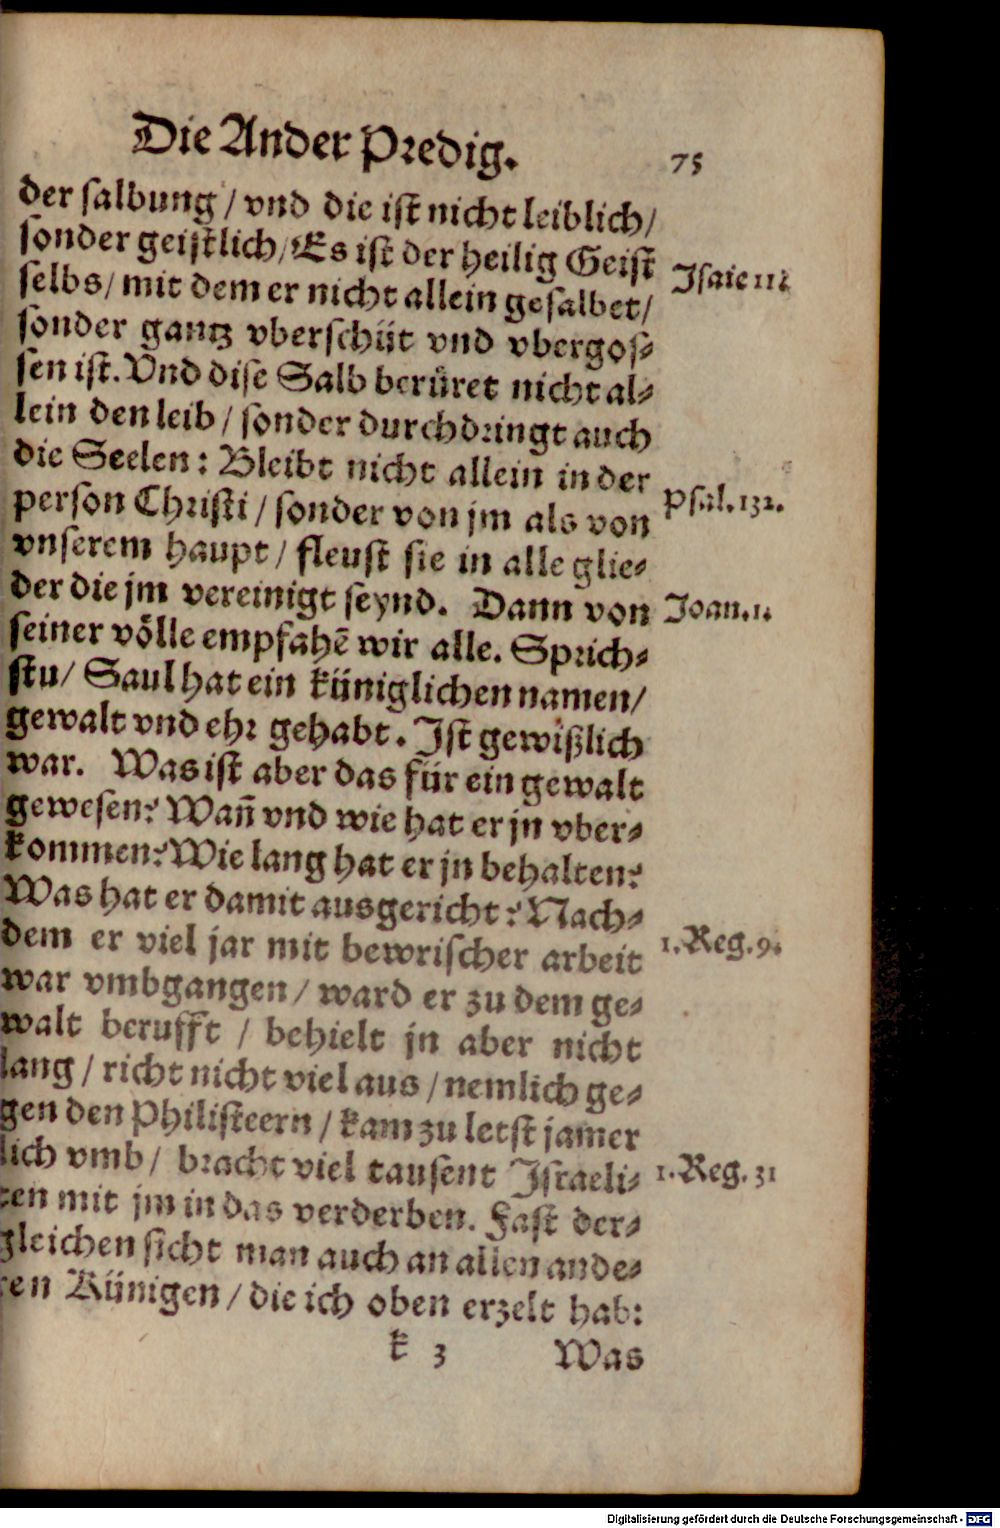 Die Ander Predig.
75
der salbung / vnd die ist nicht leiblich /
sonder geistlich / Es ist der heilig Geist
selbs / mit dem er nicht allein gesalbet /
sonder gantz vberschüt vnd vbergos⸗
sen ist. Vnd dise Salb berüret nicht al⸗
lein den leib / sonder durchdringt auch
die Seelen: Bleibt nicht allein in der
person Christi / sonder von jm als von
vnserem haupt / fleust sie in alle glie⸗
der die jm vereinigt seynd. Dann von
seiner völle empfahē wir alle. Sprich⸗
stu / Saul hat ein küniglichen namen /
gewalt vnd ehr gehabt. Ist gewißlich
war. Was ist aber das für ein gewalt
gewesen? Wañ vnd wie hat er jn vber⸗
kommen? Wie lang hat er jn behalten?
Was hat er damit ausgericht? Nach⸗
dem er viel jar mit bewrischer arbeit
war vmbgangen / ward er zu dem ge⸗
walt berufft / behielt jn aber nicht
lang / richt nicht viel aus / nemlich ge⸗
gen den Philisteern / kam zu letst jamer
lich vmb / bracht viel tausent Israeli⸗
ten mit jm in das verderben. Fast der⸗
gleichen sicht man auch an allen ande⸗
ren Künigen / die ich oben erzelt hab:
k 3
Was
Isaie
Psal. 132.
Joan. 1.
1. Reg. 9.
1. Reg. 31
Digitalisierung gefördert durch die Deutsche Forschungsgemeinschaft - DFG